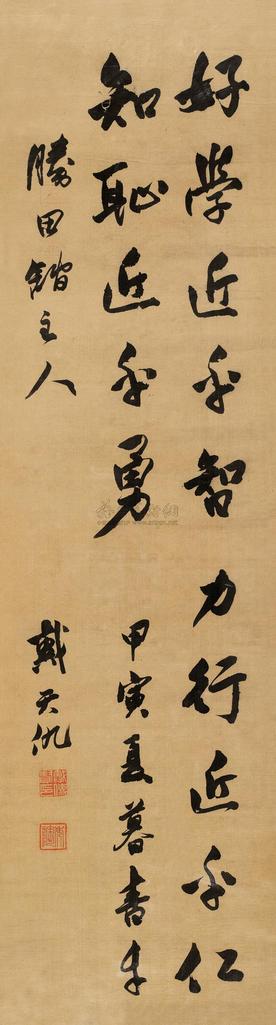 好學近乎智力行近乎仁
知恥近乎勇
甲寅夏暮書奉
勝田館主人
戴天仇